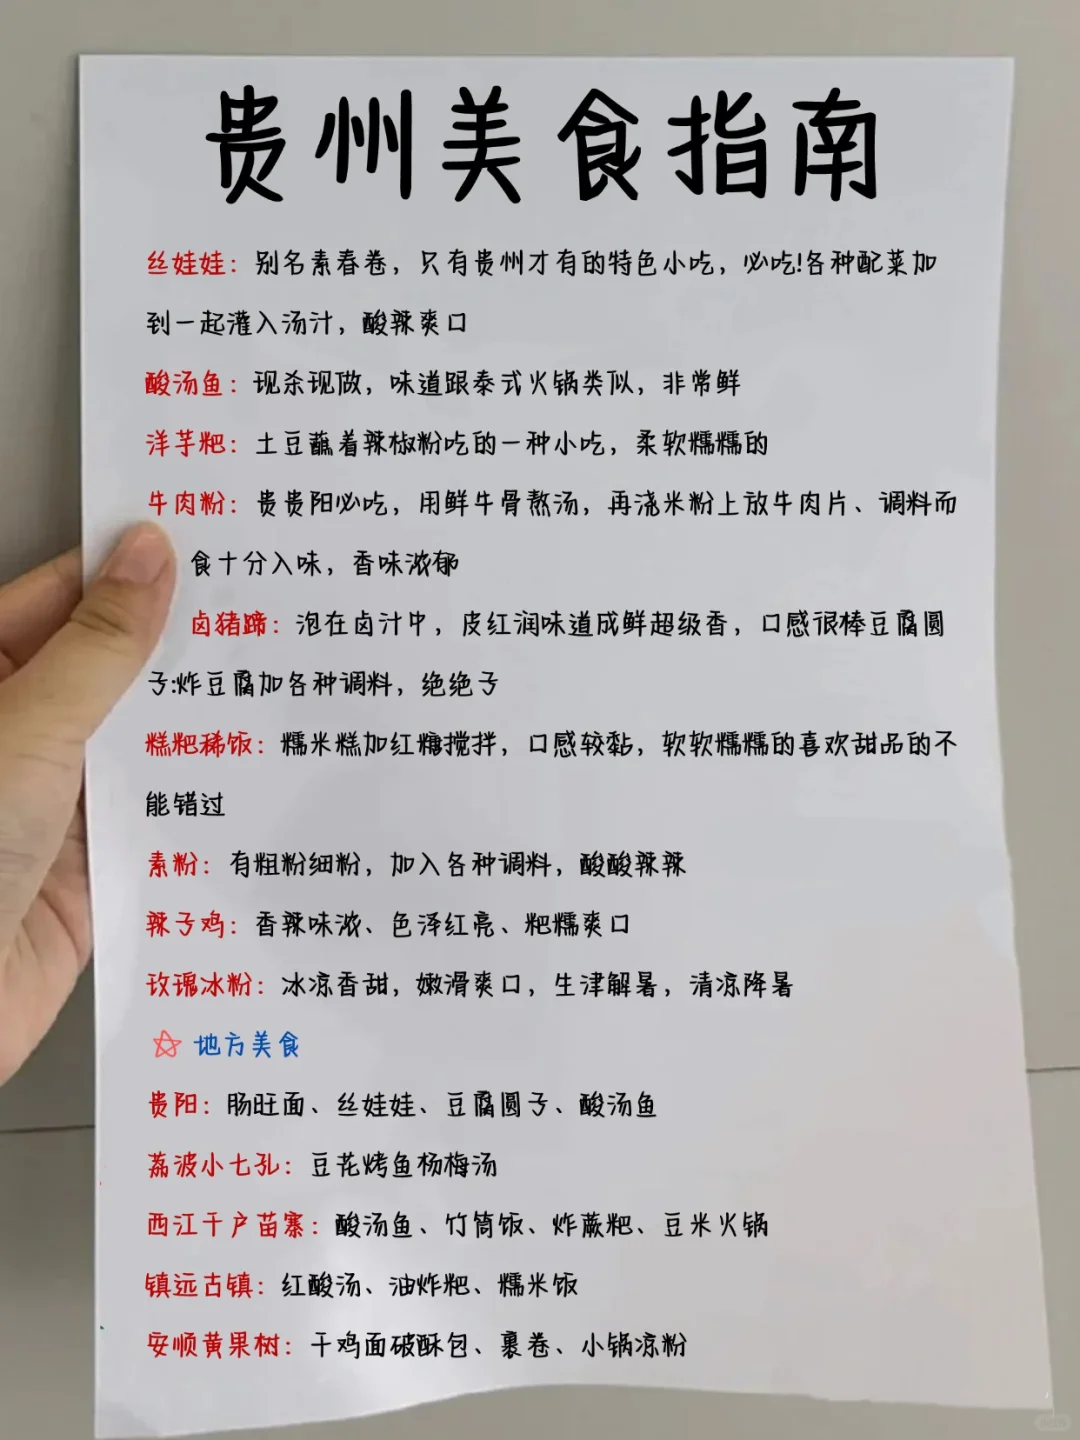 贵州美食指南
丝娃娃：别名素春卷，只有贵州才有的特色小吃，必吃!各种配菜加
到一起灌入汤汁，酸辣爽口
酸汤鱼：现杀现做，味道跟泰式火锅类似，非常鲜
洋芋粑：土豆蘸着辣椒粉吃的一种小吃，柔软糯糯的
牛肉粉：贵贵阳必吃，用鲜牛骨熬汤，再浇米粉上放牛肉片、调料而
食十分入味，香味浓郁
卤猪蹄：泡在卤汁中，皮红润味道咸鲜超级香，口感很棒豆腐圆
子:炸豆腐加各种调料，绝绝子
糕粑稀饭：糯米糕加红糖搅拌，口感较黏，软软糯糯的喜欢甜品的不
能错过
素粉：有粗粉细粉，加入各种调料，酸酸辣辣
辣子鸡：香辣味浓、色泽红亮、粑糯爽口
玫瑰冰粉：冰凉香甜，嫩滑爽口，生津解暑，清凉降暑
地方美食
贵阳：肠旺面、丝娃娃、豆腐圆子、酸汤鱼
荔波小七孔：豆花烤鱼杨梅汤
西江千户苗寨：酸汤鱼、竹筒饭、炸蕨粑、豆米火锅
镇远古镇：红酸汤、油炸粑、糯米饭
安顺黄果树：干鸡面破酥包、裹卷、小锅凉粉